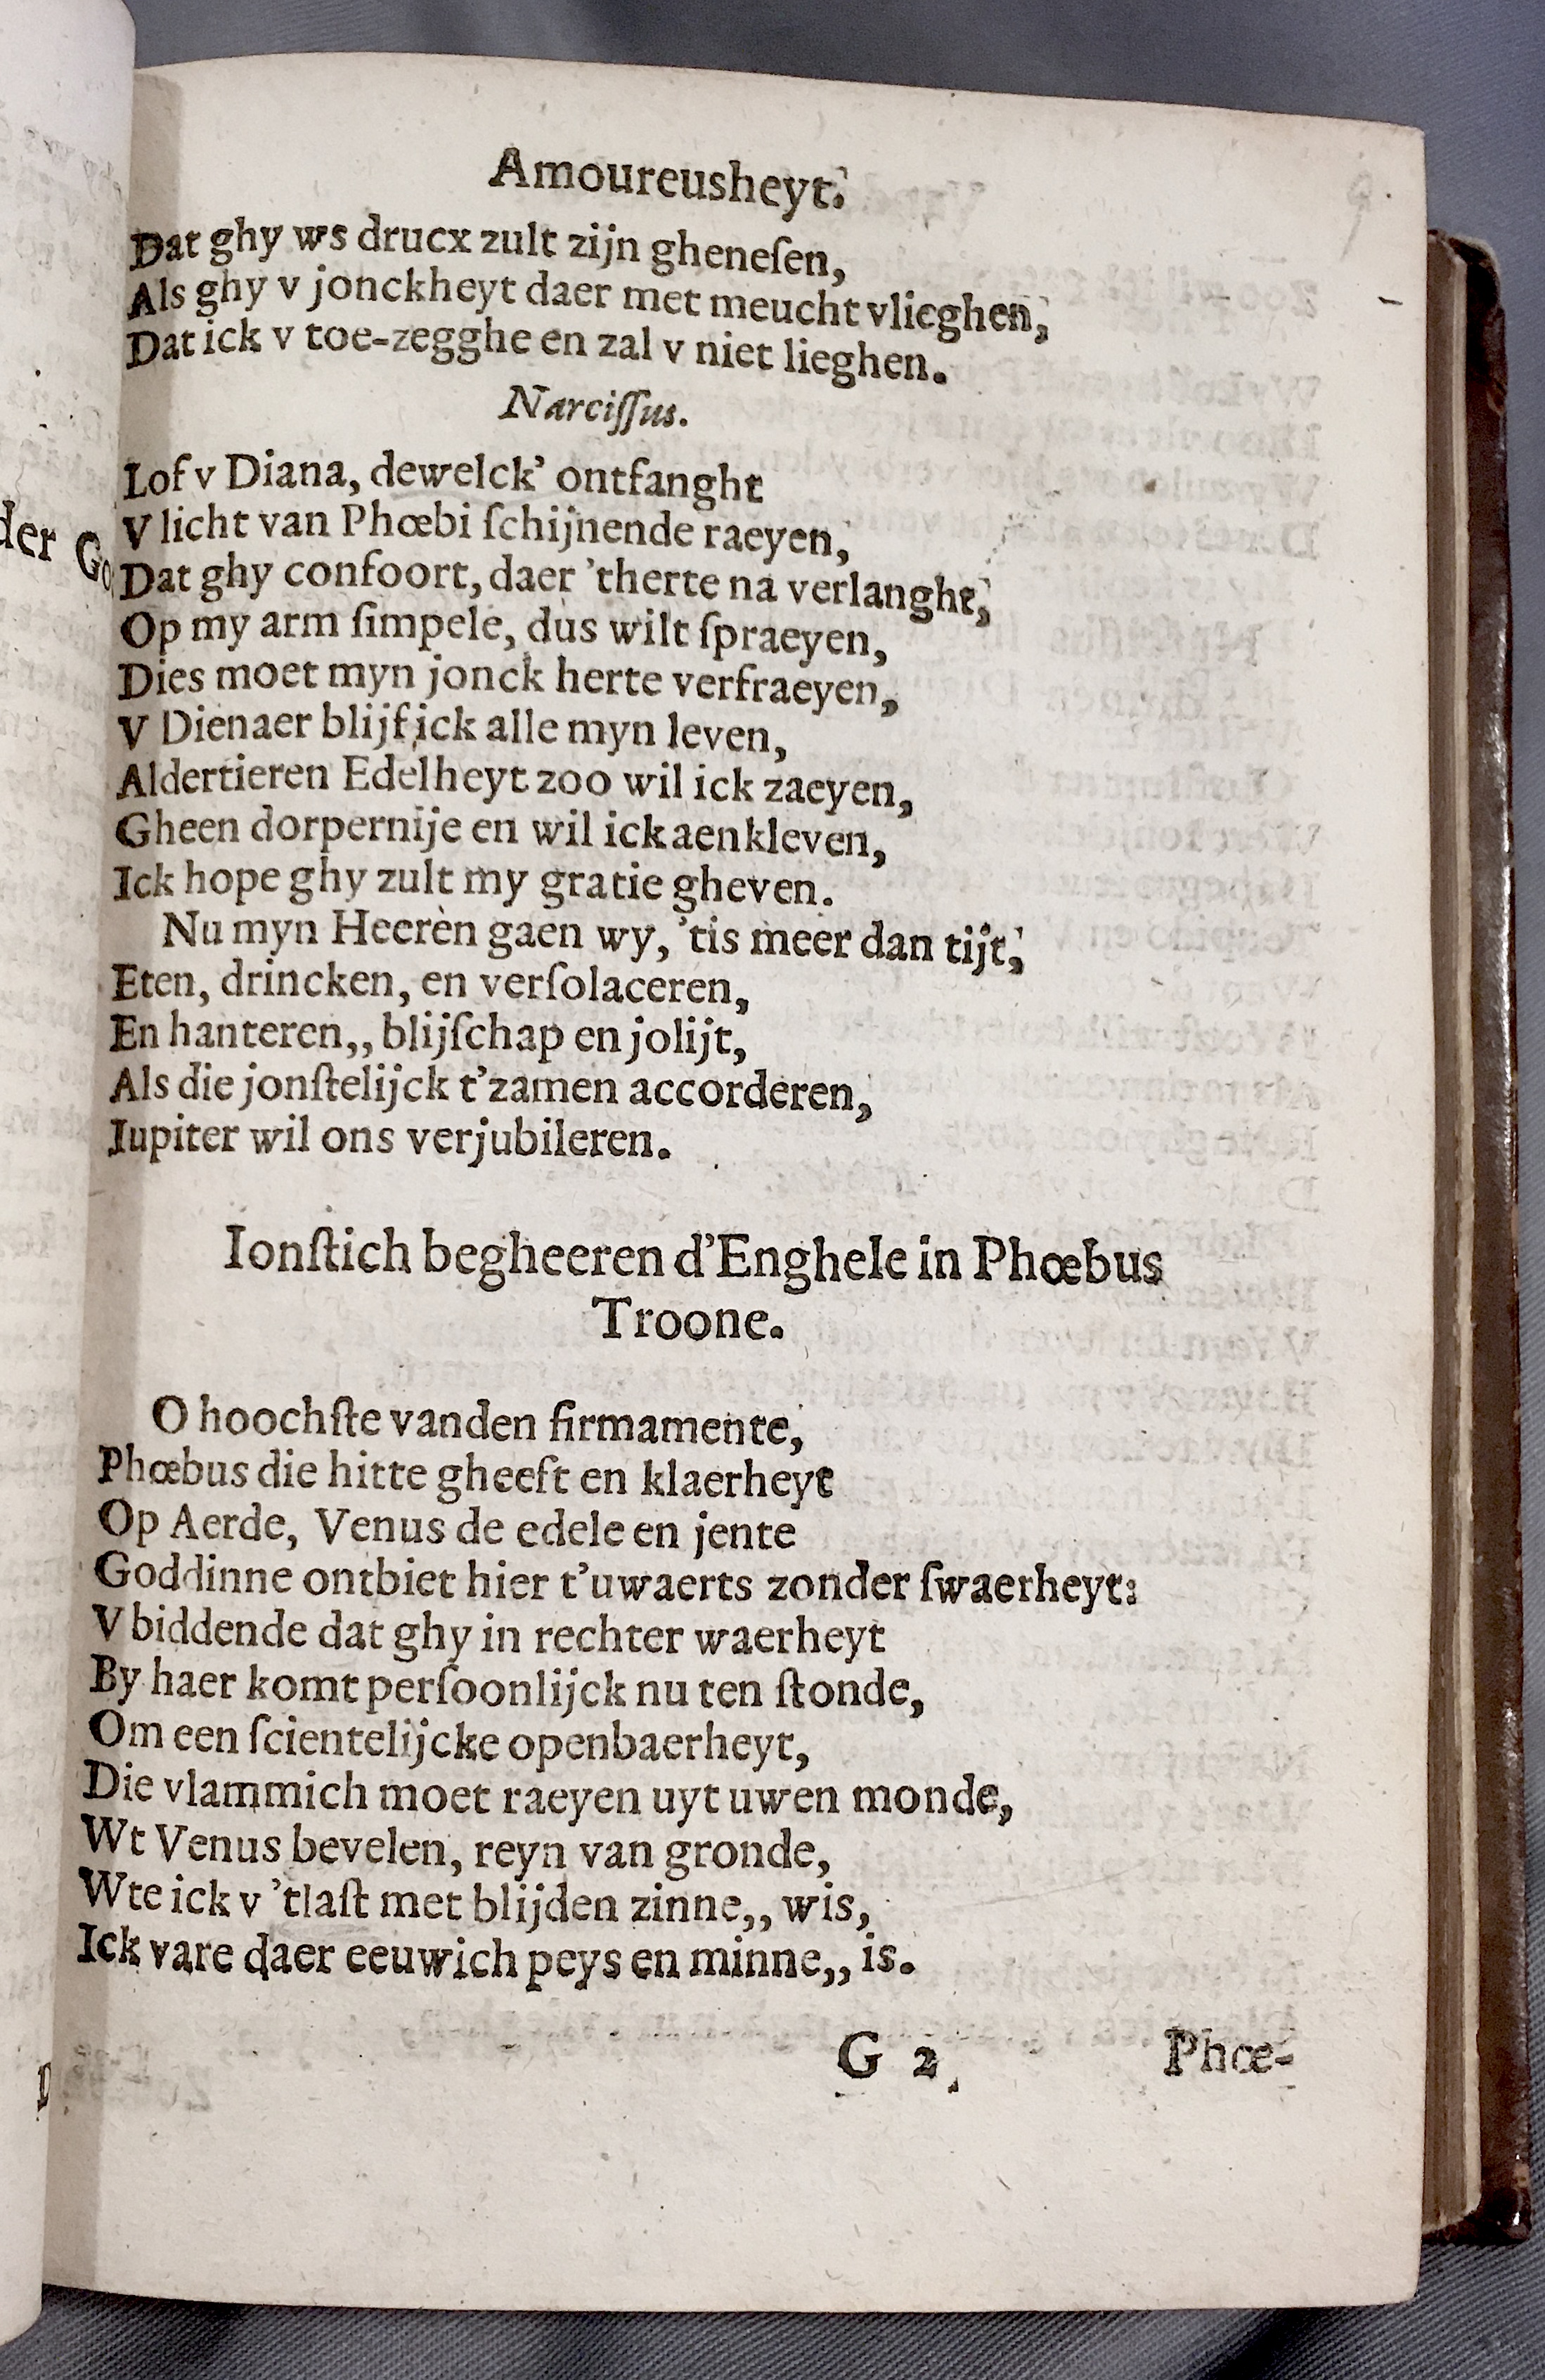 Amoureusheyt.
Dat ghy ws drucx zult zijn gheneſen,
Als ghy v jonckheyt daer met meucht vlieghen,
Dat ick v toe-zegghe en zal v niet lieghen.
Narciſſus.
Lof v Diana, dewelck’ ontfanght
V licht van Phœbi ſchijnende raeyen,
Dat ghy confoort, daer ’therte na verlanght,
Op my arm ſimpele, dus wilt ſpraeyen,
Dies moet myn jonck herte verfraeyen,
V Dienaer blijf ick alle myn leven,
Aldertieren Edelheyt zoo wil ick zaeyen,
Gheen dorpernije en wil ick aenkleven,
Ick hope ghy zult my gratie gheven.
Nu myn Heeren gaen wy, ’tis meer dan tijt,
Eten, drincken, en verſolaceren,
En hanteren,, blijſchap en jolijt,
Als die jonſtelijck t’zamen accorderen,
Iupiter wil ons verjubileren.
Ionſtich begheeren d’Enghele in Phœbus
Troone.
O hoochſte vanden firmamente,
Phœbus die hitte gheeft en klaerheyt
Op Aerde, Venus de edele en jente
Goddinne ontbiet hier t’uwaerts zonder ſwaerheyt:
V biddende dat ghy in rechter waerheyt
By haer komt perſoonlijck nu ten ſtonde,
Om een ſcientelijcke openbaerheyt,
Die vlammich moet raeyen uyt uwen monde,
Wt Venus bevelen, reyn van gronde,
Wte ick v ’tlaſt met blijden zinne,, wis,
Ick vare daer eeuwich peys en minne,, is.
G 2
Phœ-